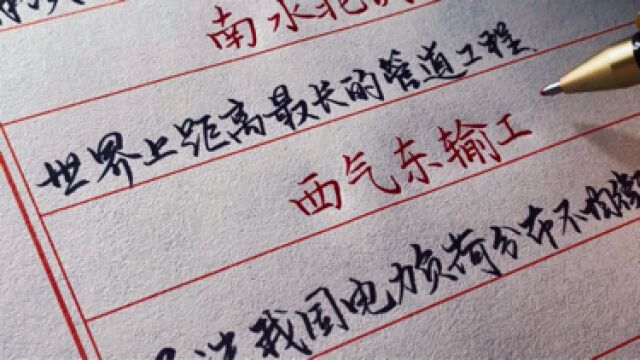 南水北
世界上距离最长的管道工程
西气东输工
我国电力负荷分布不均